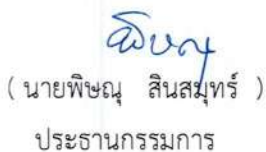 พิษณุ
( นายพิษณุ สินสมุทร์ )
ประธานกรรมการ